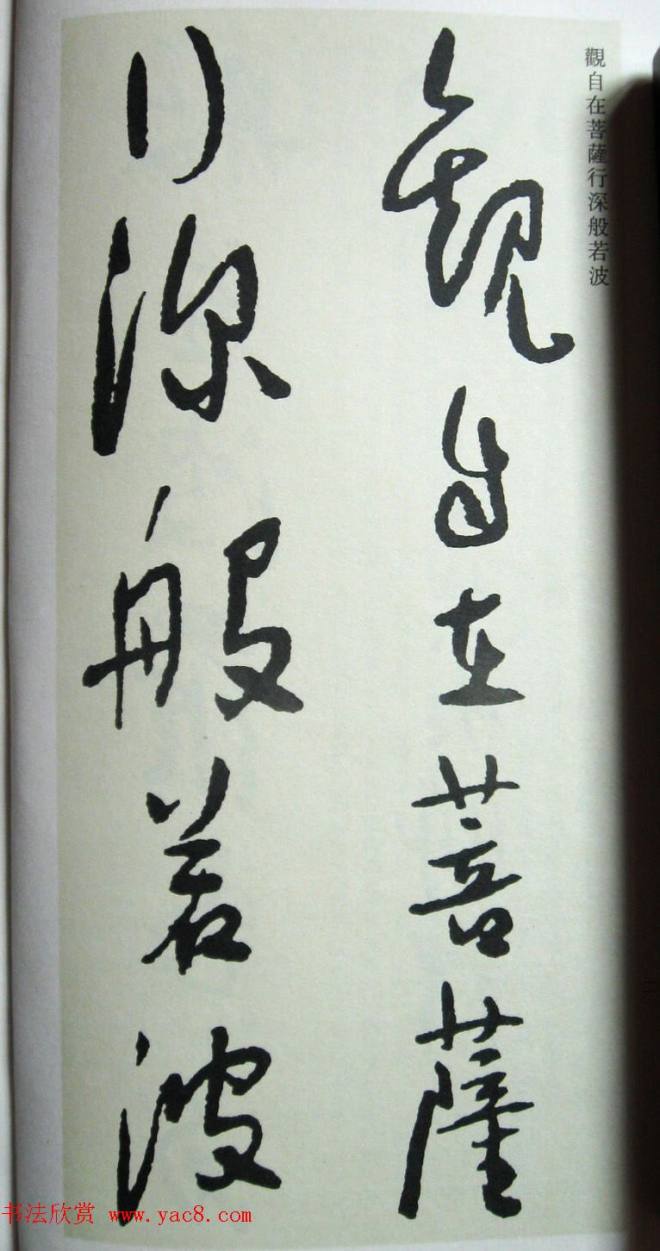 觀自在菩薩行深般若波
觀自在菩薩
行深般若波
书法欣赏 www.yac8.com